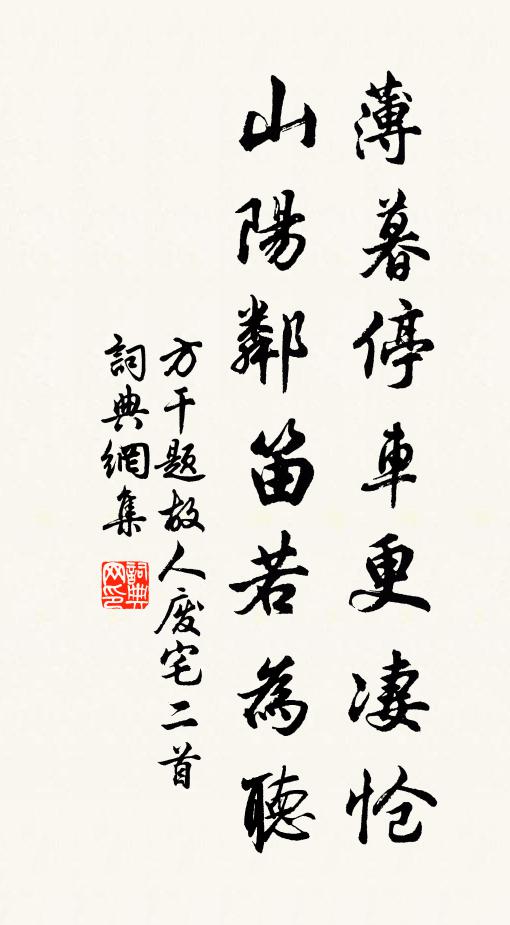 薄暮停車更凄愴
山陽鄰笛若為聽
方干題故人廢宅二首
詞典網集
詞典网印